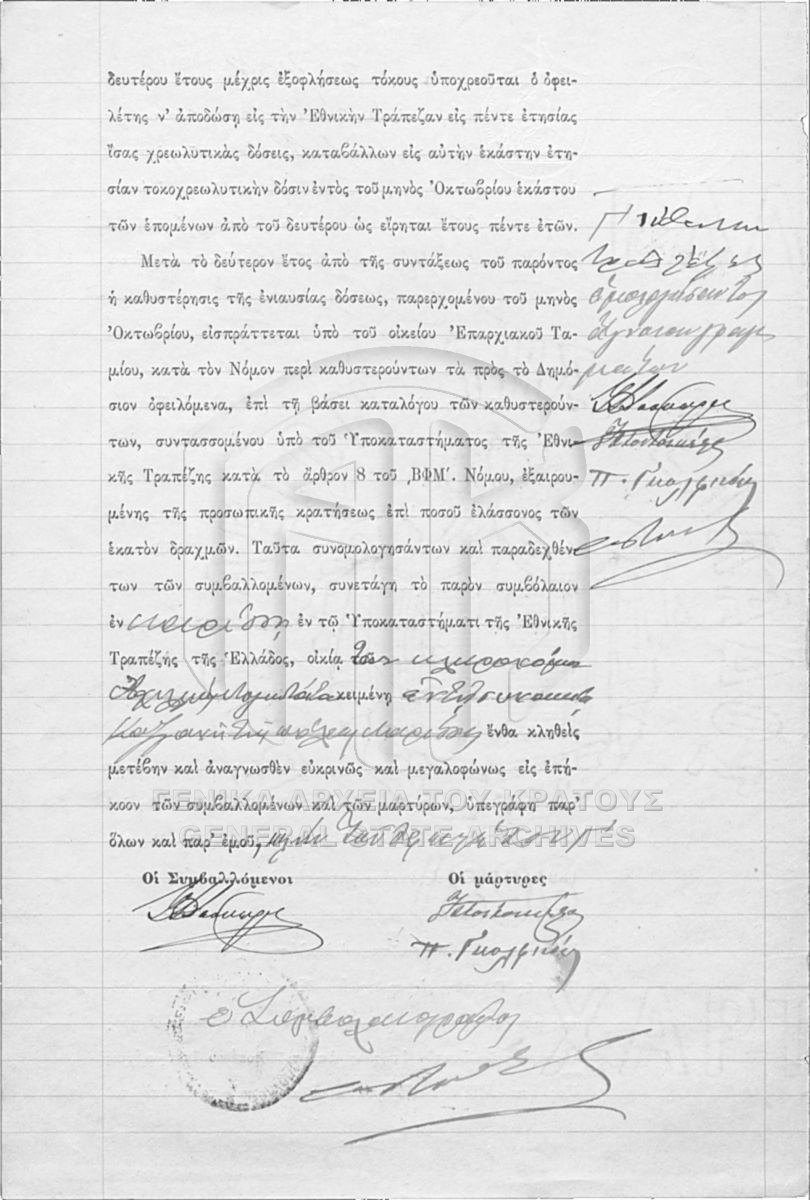 δευτέρου ἔτους μέχρις ἐξοφλήσεως τόκους ὑποχρεοῦται ὁ ὀφει-
λέτης ν' ἀποδώσῃ εἰς τὴν Ἐθνικὴν Τράπεζαν εἰς πέντε ἐτησίας
ἴσας χρεωλυτικὰς δόσεις, καταβάλλων εἰς αὐτὴν ἑκάστην ἐτη-
σίαν τοκοχρεωλυτικὴν δόσιν ἐντὸς τοῦ μηνὸς Ὀκτωβρίου ἑκάστου
τῶν ἑπομένων ἀπὸ τοῦ δευτέρου ὡς εἴρηται ἔτους πέντε ἐτῶν.
Μετὰ τὸ δεύτερον ἔτος ἀπὸ τῆς συντάξεως τοῦ παρόντος
ἡ καθυστέρησις τῆς ἐνιαυσίας δόσεως, παρερχομένου τοῦ μηνὸς
Ὀκτωβρίου, εἰσπράττεται ὑπὸ τοῦ οἰκείου Ἐπαρχιακοῦ Τα-
μίου, κατὰ τὸν Νόμον περὶ καθυστερούντων τὰ πρὸς τὸ Δημό-
σιον ὀφειλόμενα, ἐπὶ τῇ βάσει καταλόγου τῶν καθυστερούν-
των, συντασσομένου ὑπὸ τοῦ Ὑποκαταστήματος τῆς Ἐθνι-
κῆς Τραπέζης κατὰ τὸ ἄρθρον 8 τοῦ ͵ΒΦΜ΄. Νόμου, ἐξαιρου-
μένης τῆς προσωπικῆς κρατήσεως ἐπὶ ποσοῦ ἐλάσσονος τῶν
ἑκατὸν δραχμῶν. Ταῦτα συνομολογησάντων καὶ παραδεχθέν-
των τῶν συμβαλλομένων, συνετάγη τὸ παρὸν συμβόλαιον
ἐν Λαρίσῃ ἐν τῷ Ὑποκαταστήματι τῆς Ἐθνικῆς
Τραπέζης τῆς Ἑλλάδος, οἰκίᾳ τῶν κληρονόμων
κειμένῃ
ἔνθα κληθεὶς
μετέβην καὶ ἀναγνωσθὲν εὐκρινῶς καὶ μεγαλοφώνως εἰς ἐπή-
κοον τῶν συμβαλλομένων καὶ τῶν μαρτύρων, ὑπεγράφη παρ'
ὅλων καὶ παρ' ἐμοῦ, πλὴν
Οἱ Συμβαλλόμενοι Οἱ μάρτυρες
Ὁ Συμβολαιογράφος
ΓΕΝΙΚΑ ΑΡΧΕΙΑ ΤΟΥ ΚΡΑΤΟΥΣ
GENERAL STATE ARCHIVES